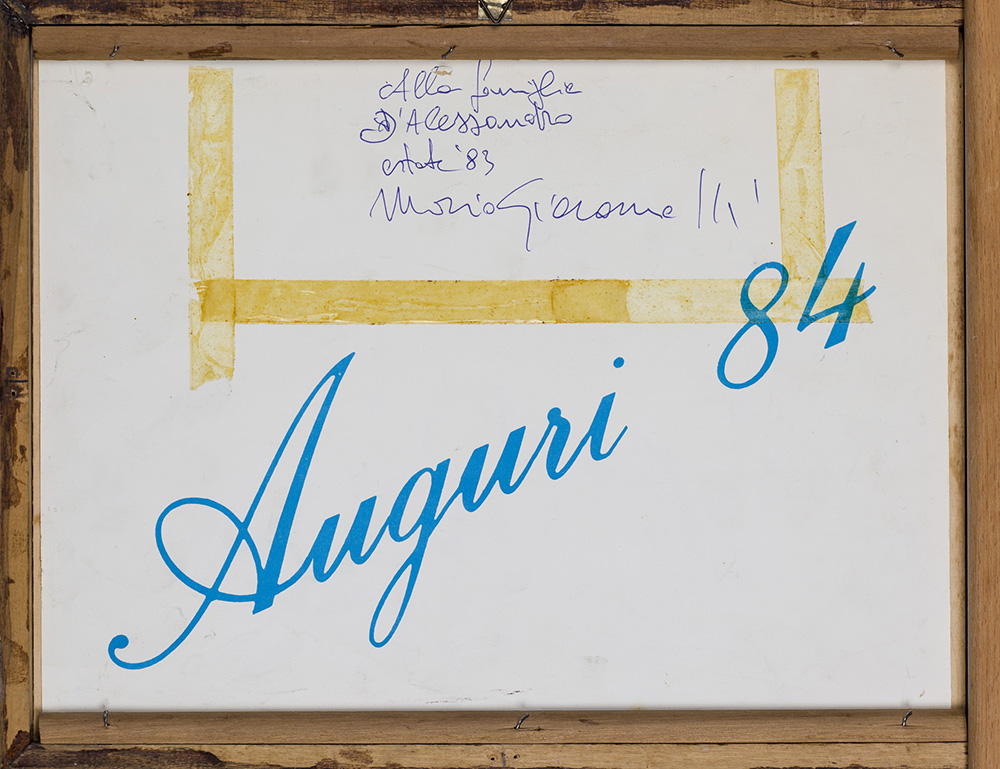 Alla famiglia
D'Alessandro
estate '83
Mario Giacomelli
84
Auguri